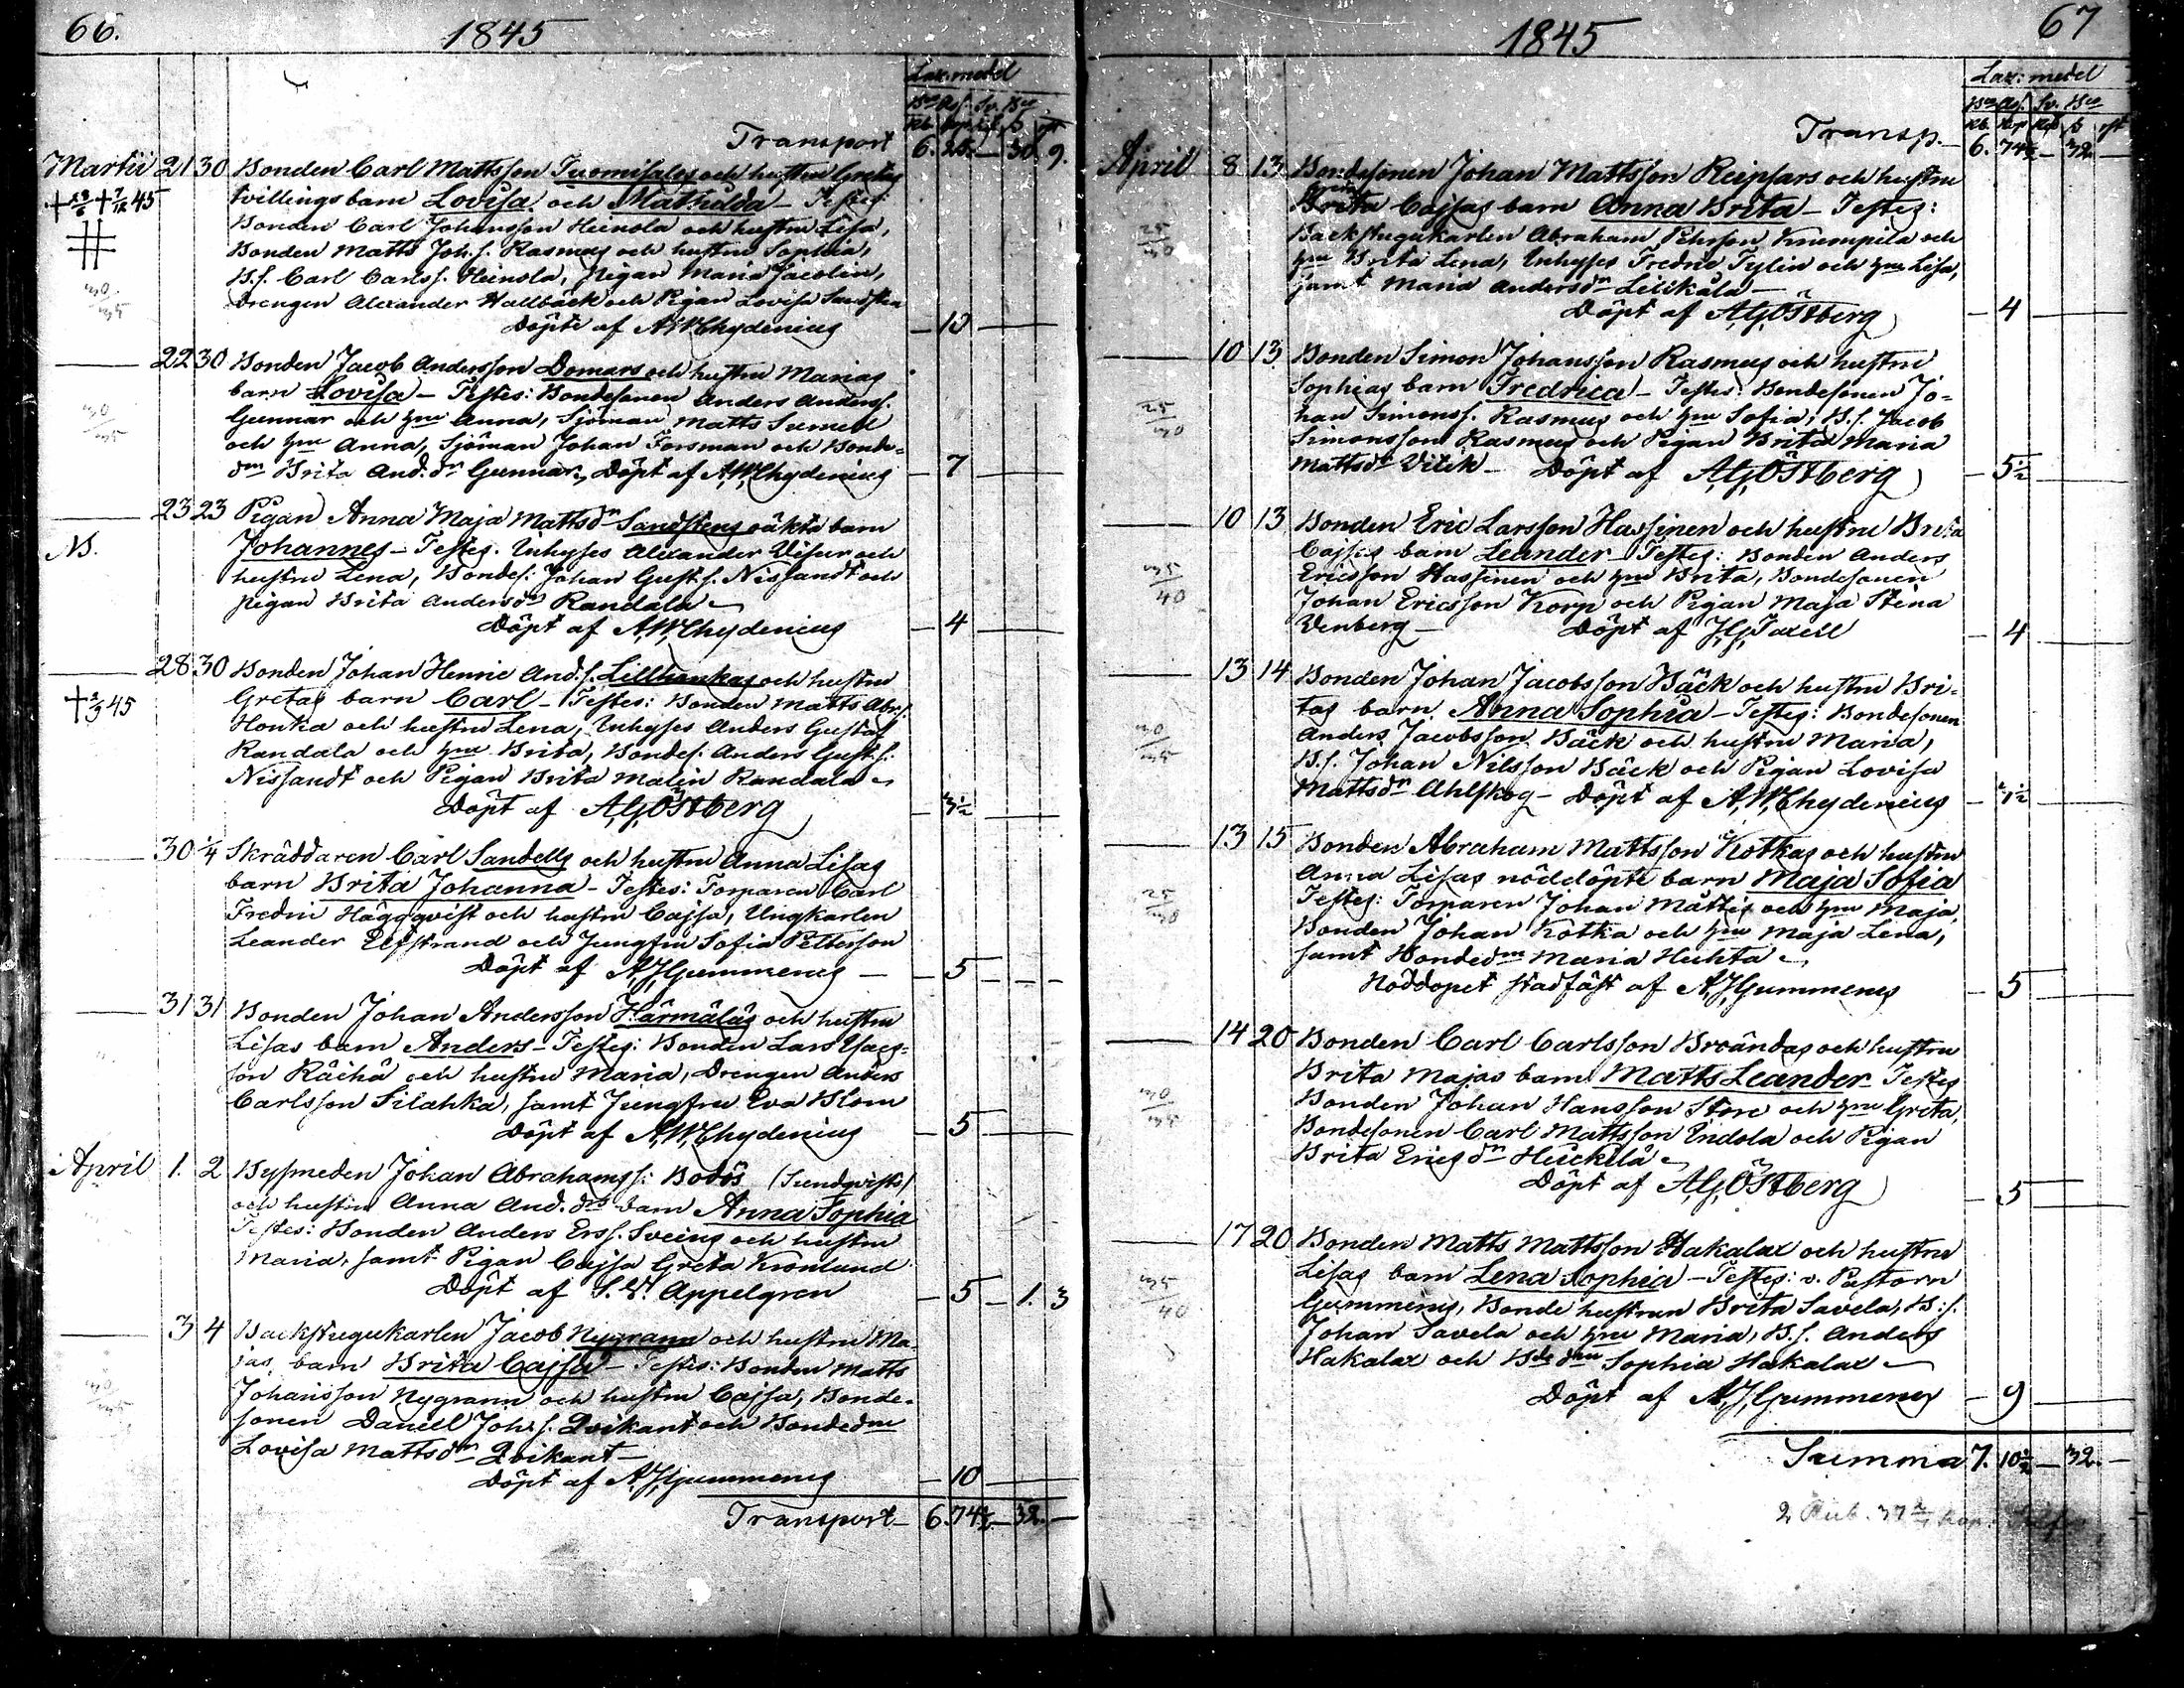 66.
1845
Laz: medel
Transport 6. 25. — 30. 9.
Martii 21 30 Bonden Carl Mattsson Tuomisalos och hustru Gretas
tvillingsbarn Lovisa och Mathilda – Testes:
Bonden Carl Johansson Heinola och hustru Lisa,
Bonden Matts Joh.s. Rasmus och hustru Sophia,
B.s. Carl Carls.s. Heinola, Pigan Maria Jacolin,
Drengen Alexander Hallbäck och Pigan Lovisa Sandsten
Döpte af A.W.Chydenius — 10
22 30 Bonden Jacob Andersson Domars och hustru Marias
barn Lovisa – Testes: Bondesonen Anders Anders.s.
Gunnar och hru Anna, Sjöman Matts Sumell
och hru Anna, Sjöman Johan Forsman och Bonde-
dm Brita And.dr Gunnar, Döpt af A.W.Chydenius — 7
23 23 Pigan Anna Maja Mattsdr Sandstens oäkta barn
Johannes – Testes. Inhyses Alexander Visur och
hustru Lena, Bondes: Johan Gust.s. Nissandt och
Pigan Brita Andersdr Randala
NB.
Döpt af A.W.Chydenius — 4
28 30 Bonden Johan Henric And.s. Lillhonkas och hustru
Gretas barn Carl – Testes: Bonden Matts Abr.s.
Honka och hustru Lena, Inhyses Anders Gustaf
Randala och hru Brita, Bondes. Anders Gust.s.
Nissandt och Pigan Brita Malin Randala
Döpt af A.G.Östberg — 3½
30 1/4 Skräddaren Carl Sandells och hustru Anna Lisas
barn Brita Johanna – Testes: Torparen Carl
Fredric Häggqvist och hustru Cajsa, Ungkarlen
Leander Elfstrand och Jungfru Sofia Pettersson
Döpt af A.J.Gummerus — 5
31 31 Bonden Johan Andersson Härmäläs och hustru
Lisas barn Anders – Testes: Bonden Lars Isacs-
son Rächä och hustru Maria, Drengen Anders
Carlsson Silahka, samt Jungfru Eva Blom
Döpt af A.W.Chydenius — 5
April 1. 2 Bysmeden Johan Abrahams.s. Bodös (Sundqvists)
och hustru Anna And.drs barn Anna Sophia
Testes: Bonden Anders Ers.s. Sveins och hustru
Maria, samt Pigan Cajsa Greta Kronlund
Döpt af S.W. Appelgren — 5 — 1. 3
3 4 Backstugukarlen Jacob Nygrann och hustru Ma-
jas barn Brita Cajsa – Testes: Bonden Matts
Johansson Nygrann och hustru Cajsa, Bonde-
sonen Daniel Joh.s. Qvikant och Bondedm
Lovisa Mattsdr Qvikant –
Döpt af A.J.Gummerus — 10
Transport – 6. 74½ — 32. —
67
1845
Laz: medel
Transp. – 6. 74½ — 32 —
April 8 13 Bondesonen Johan Mattsson Reipsars och hustru
Brita Cajsas barn Anna Brita – Testes:
Backstugukarlen Abraham Pehrsson Krumpila och
hru Brita Lena, Inhyses Fredric Tylin och hru Lisa,
samt Maria Andersdr Lillkåla –
Döpt af A.G.Östberg — 4
10 13 Bonden Simon Johansson Rasmus och hustru
Sophias barn Fredrica – Testes: Bondesonen Jo-
han Simons.s. Rasmus och hru Sofia, B.s. Jacob
Simonsson Rasmus och Pigan Brita Maria
Mattsdr Vitik – Döpt af A.G.Östberg — 5½
10 13 Bonden Eric Larsson Hassinen och hustru Brita
Cajsas barn Leander – Testes: Bonden Anders
Ericsson Hassinen och hru Brita, Bondesonen
Johan Ericsson Korp och Pigan Maja Stina
Wenberg – Döpt af J.G.Taxell — 4
13 14 Bonden Johan Jacobsson Bäck och hustru Bri-
tas barn Anna Sophia – Testes: Bondesonen
Anders Jacobsson Bäck och hustru Maria,
B.s. Johan Nilsson Bäck och Pigan Lovisa
Mattsdr Ahlskog – Döpt af A.W.Chydenius
13 15 Bonden Abraham Mattsson Kotkas och hustru
Anna Lisas nöddöpte barn Maja Sofia
Testes: Torparen Johan Mattis och hru Maja,
Bonden Johan Kotka och hru Maja Lena,
samt Bondedm Maria Huhta
Nöddopet stadfäst af A.J.Gummerus — 5
14 20 Bonden Carl Carlsson Broändas och hustru
Brita Majas barn Matts Leander – Testes
Bonden Johan Hansson Store och hru Greta,
Bondesonen Carl Mattsson Indola och Pigan
Brita Ericsdr Heickilä
Döpt af A.G.Östberg — 5
17 20 Bonden Matts Mattsson Hakalax och hustru
Lisas barn Lena Sophia – Testes: v. Pastorn
Gummerus, Bonde hustrun Brita Savela, B:s.
Johan Savela och hru Maria, B.s. Anders
Hakalax och Bdedm Sophia Hakalax –
Döpt af A.J.Gummerus — 9
Summa 7. 10½ — 32. —
2 Rub. 37